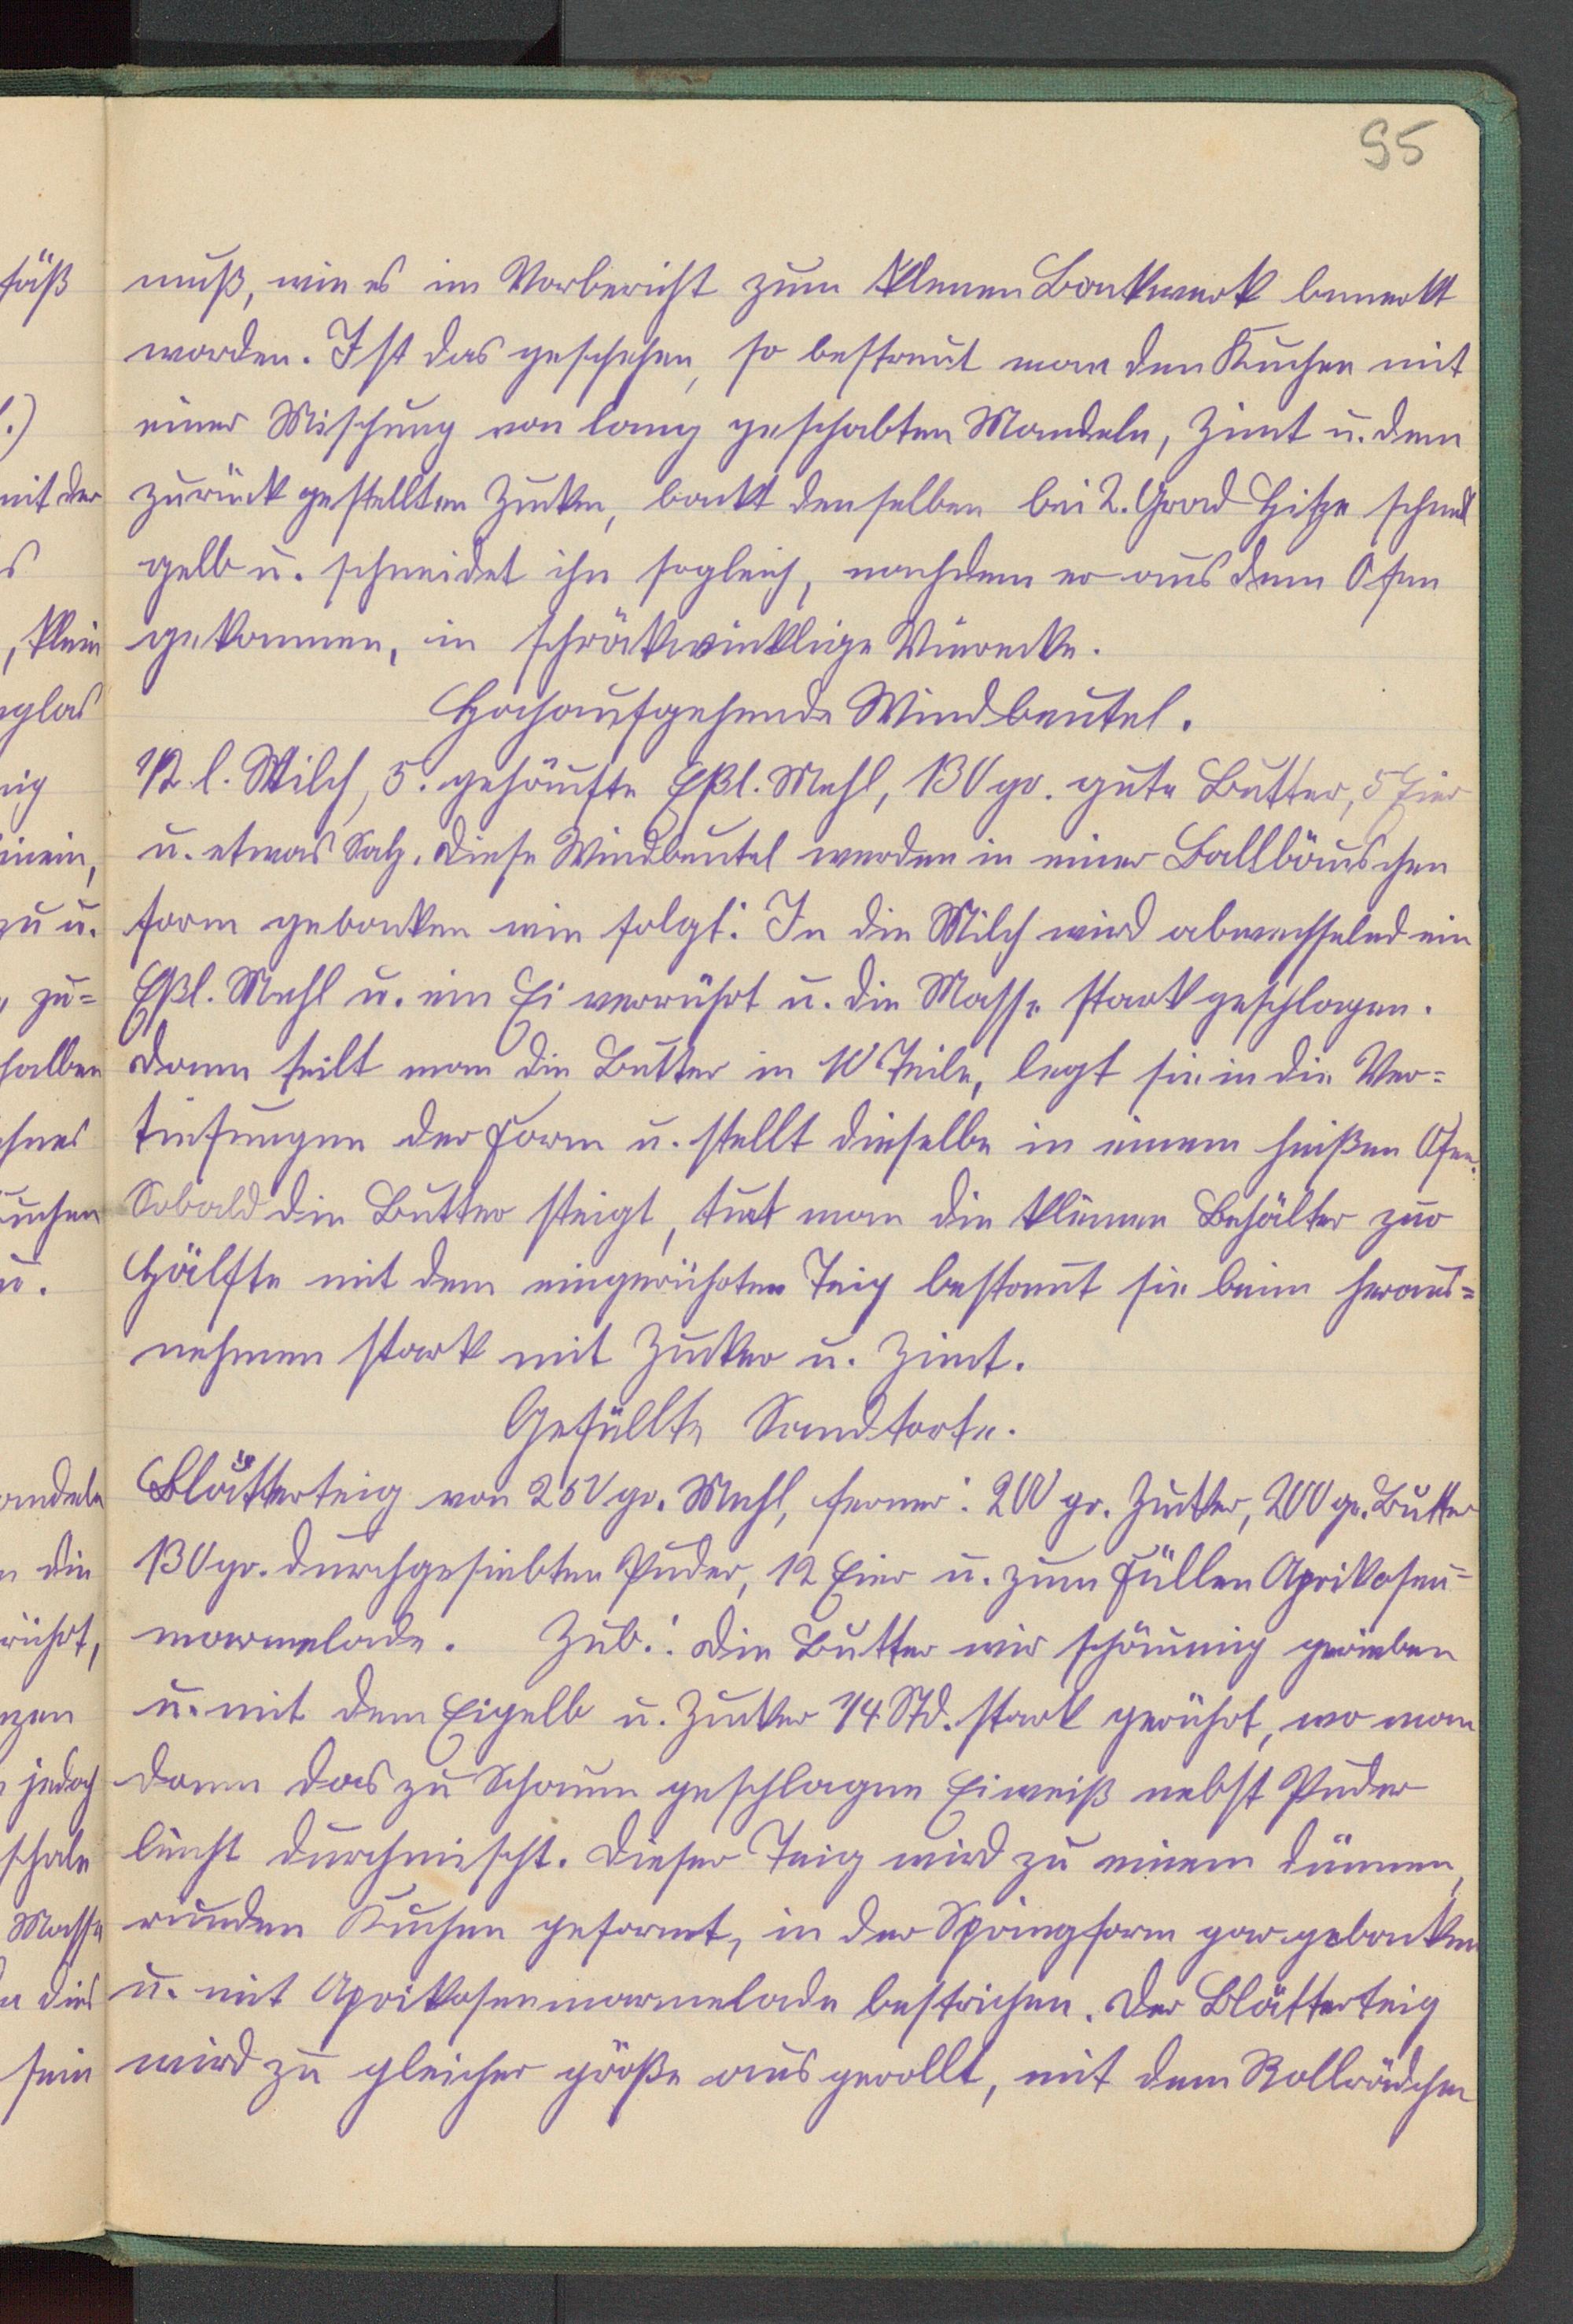 95
muß, wie es im Vorbericht zum kleinen Backwerk bemerkt
worden. Ist das geschehen, so bestreut man den Kuchen mit
einer Mischung von lang geschabten Mandeln, Zimt u. dem
zurückgestellten Zucker, backt denselben bei 2. Grad Hitze schnell
gelb u. schneidet ihn sogleich, nachdem er aus dem Ofen
gekommen, in schräkwinklige Vierecke.
Hochaufgehende Windbeutel.
1/2 l. Milch, 5. gehäufte Eßl. Mehl, 130 gr. gute Butter, 5 Eier
u. etwas Salz. Diese Windbeutel werden in einer Ballbäuschen
form gebacken wie folgt: In die Milch wird abwechselnd ein
Eßl. Mehl u. ein Ei verrührt u. die Masse stark geschlagen.
Dann teilt man die Butter in 10 Teile, legt sie in die Ver=
tiefungen der Form u. stellt dieselbe in einem heißen Ofen.
Sobald die Butter steigt, tut man die kleinen Behälter zur
Hälfte mit dem eingerührten Teig bestreut sie beim heraus=
nehmen stark mit Zucker u. Zimt.
Gefüllte Sandtorte.
Blätterteig von 250 gr. Mehl, ferner: 200 gr. Zucker, 200 gr. Butter
130 gr. durchgesiebten Puder, 12 Eier u. zum Füllen Aprikosen=
marmelade. Zub.: Die Butter wir schäumig gerieben
u. mit dem Eigelb u. Zucker 1/4 Std. stark gerührt, wo man
dann das zu Schaum geschlagene Eiweiß nebst Puder
leicht durchmischt. Dieser Teig wird zu einem dünnen,
runden Kuchen geformt, in der Springform gar gebacken
u. mit Aprikosenmarmelade bestrichen. Der Blätterteig
wird zu gleicher größe ausgerollt, mit dem Rollrädchen